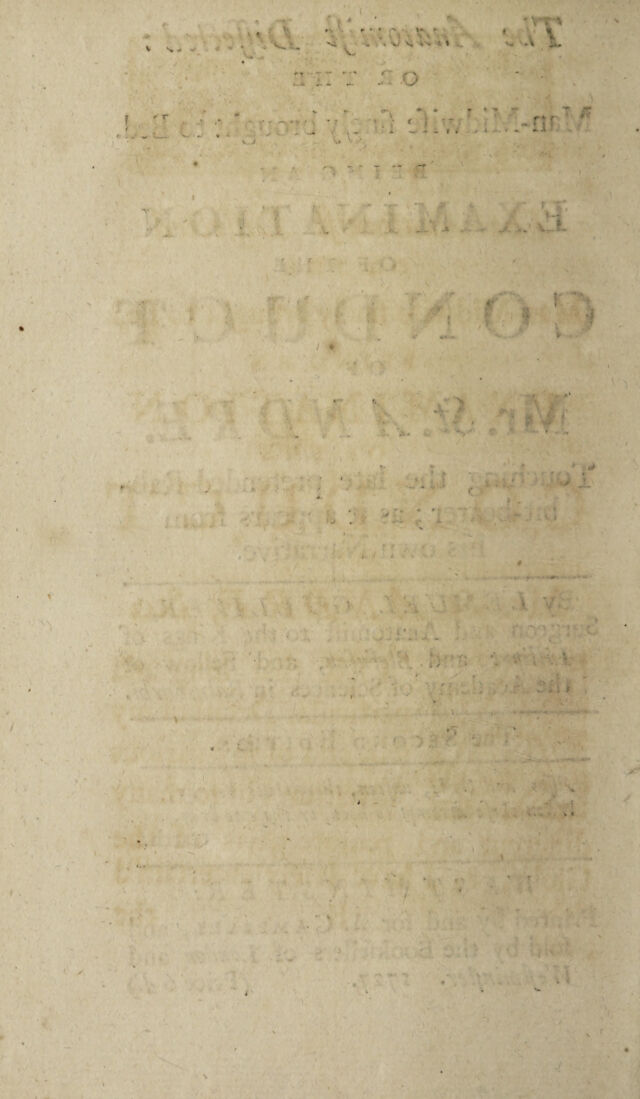 The Anatomist Dissected:
OR THE
Man-Midwife finely brought to Bed.
BEING AN
EXAMINATION
OF THE
CONDUCT
OF
Mr. St. ANDRE.
Touching the late pretended Rab-
bit-bearer; as it appears from
his own Narrative.
By LEMUEL GULLIVER,
Surgeon and Anatomist to the Kings of
Lilliput and Blefuscu, and Fellow of
the Academy of Sciences in Balnibarbi.
The SECOND EDITION.
WESTMINSTER:
Printed by and for A. CAMPBELL, and
sold by the Booksellers of London and
Westminster. 1727. (Price 6 d.)